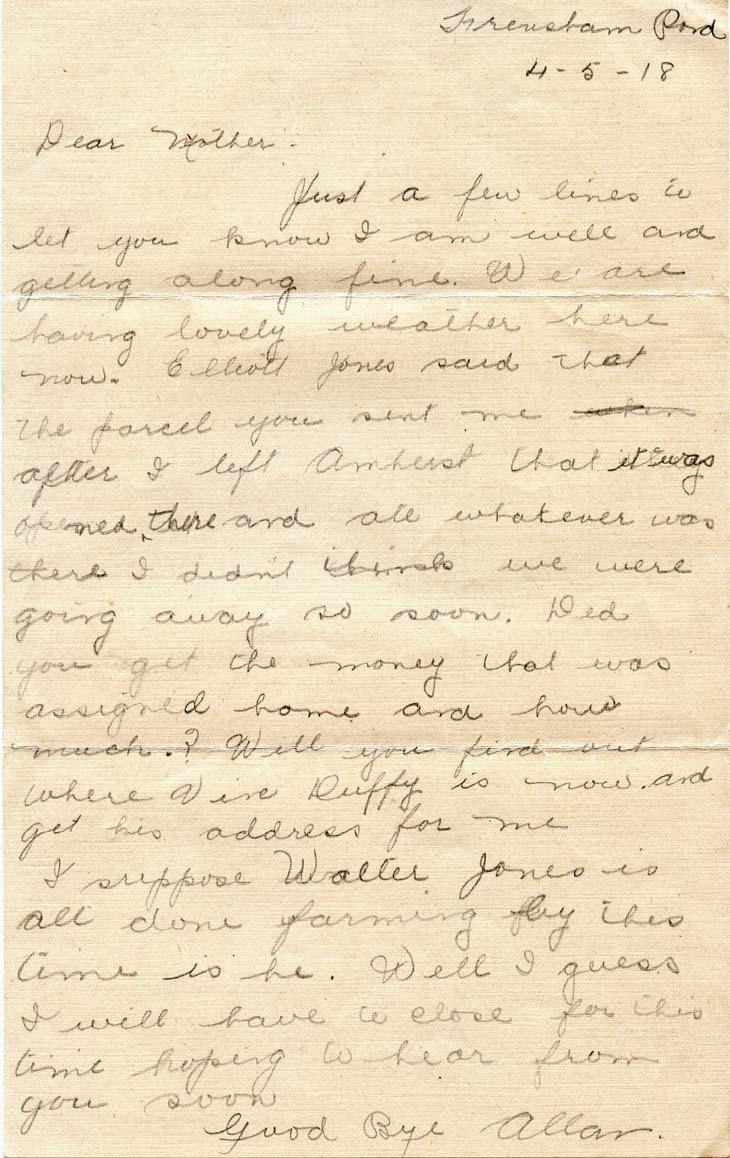 Frensham Pond
4-5-18
Dear Mother.
Just a few lines to
let you know I am well and
getting along fine. We are
having lovely weather here
now. Elliott Jones said that
the parcel you sent me when
after I left Amherst that it was
opened there and all whatever was
there I didn't think we were
going away so soon. Did
you get the money that was
assigned home and how
much.? Will you find out
where Vine Duffy is now and
get his address for me
I suppose Walter Jones is
all done farming by this
time is he. Well I guess
I will have to close for this
time hoping to hear from
you soon
Good Bye Allan.